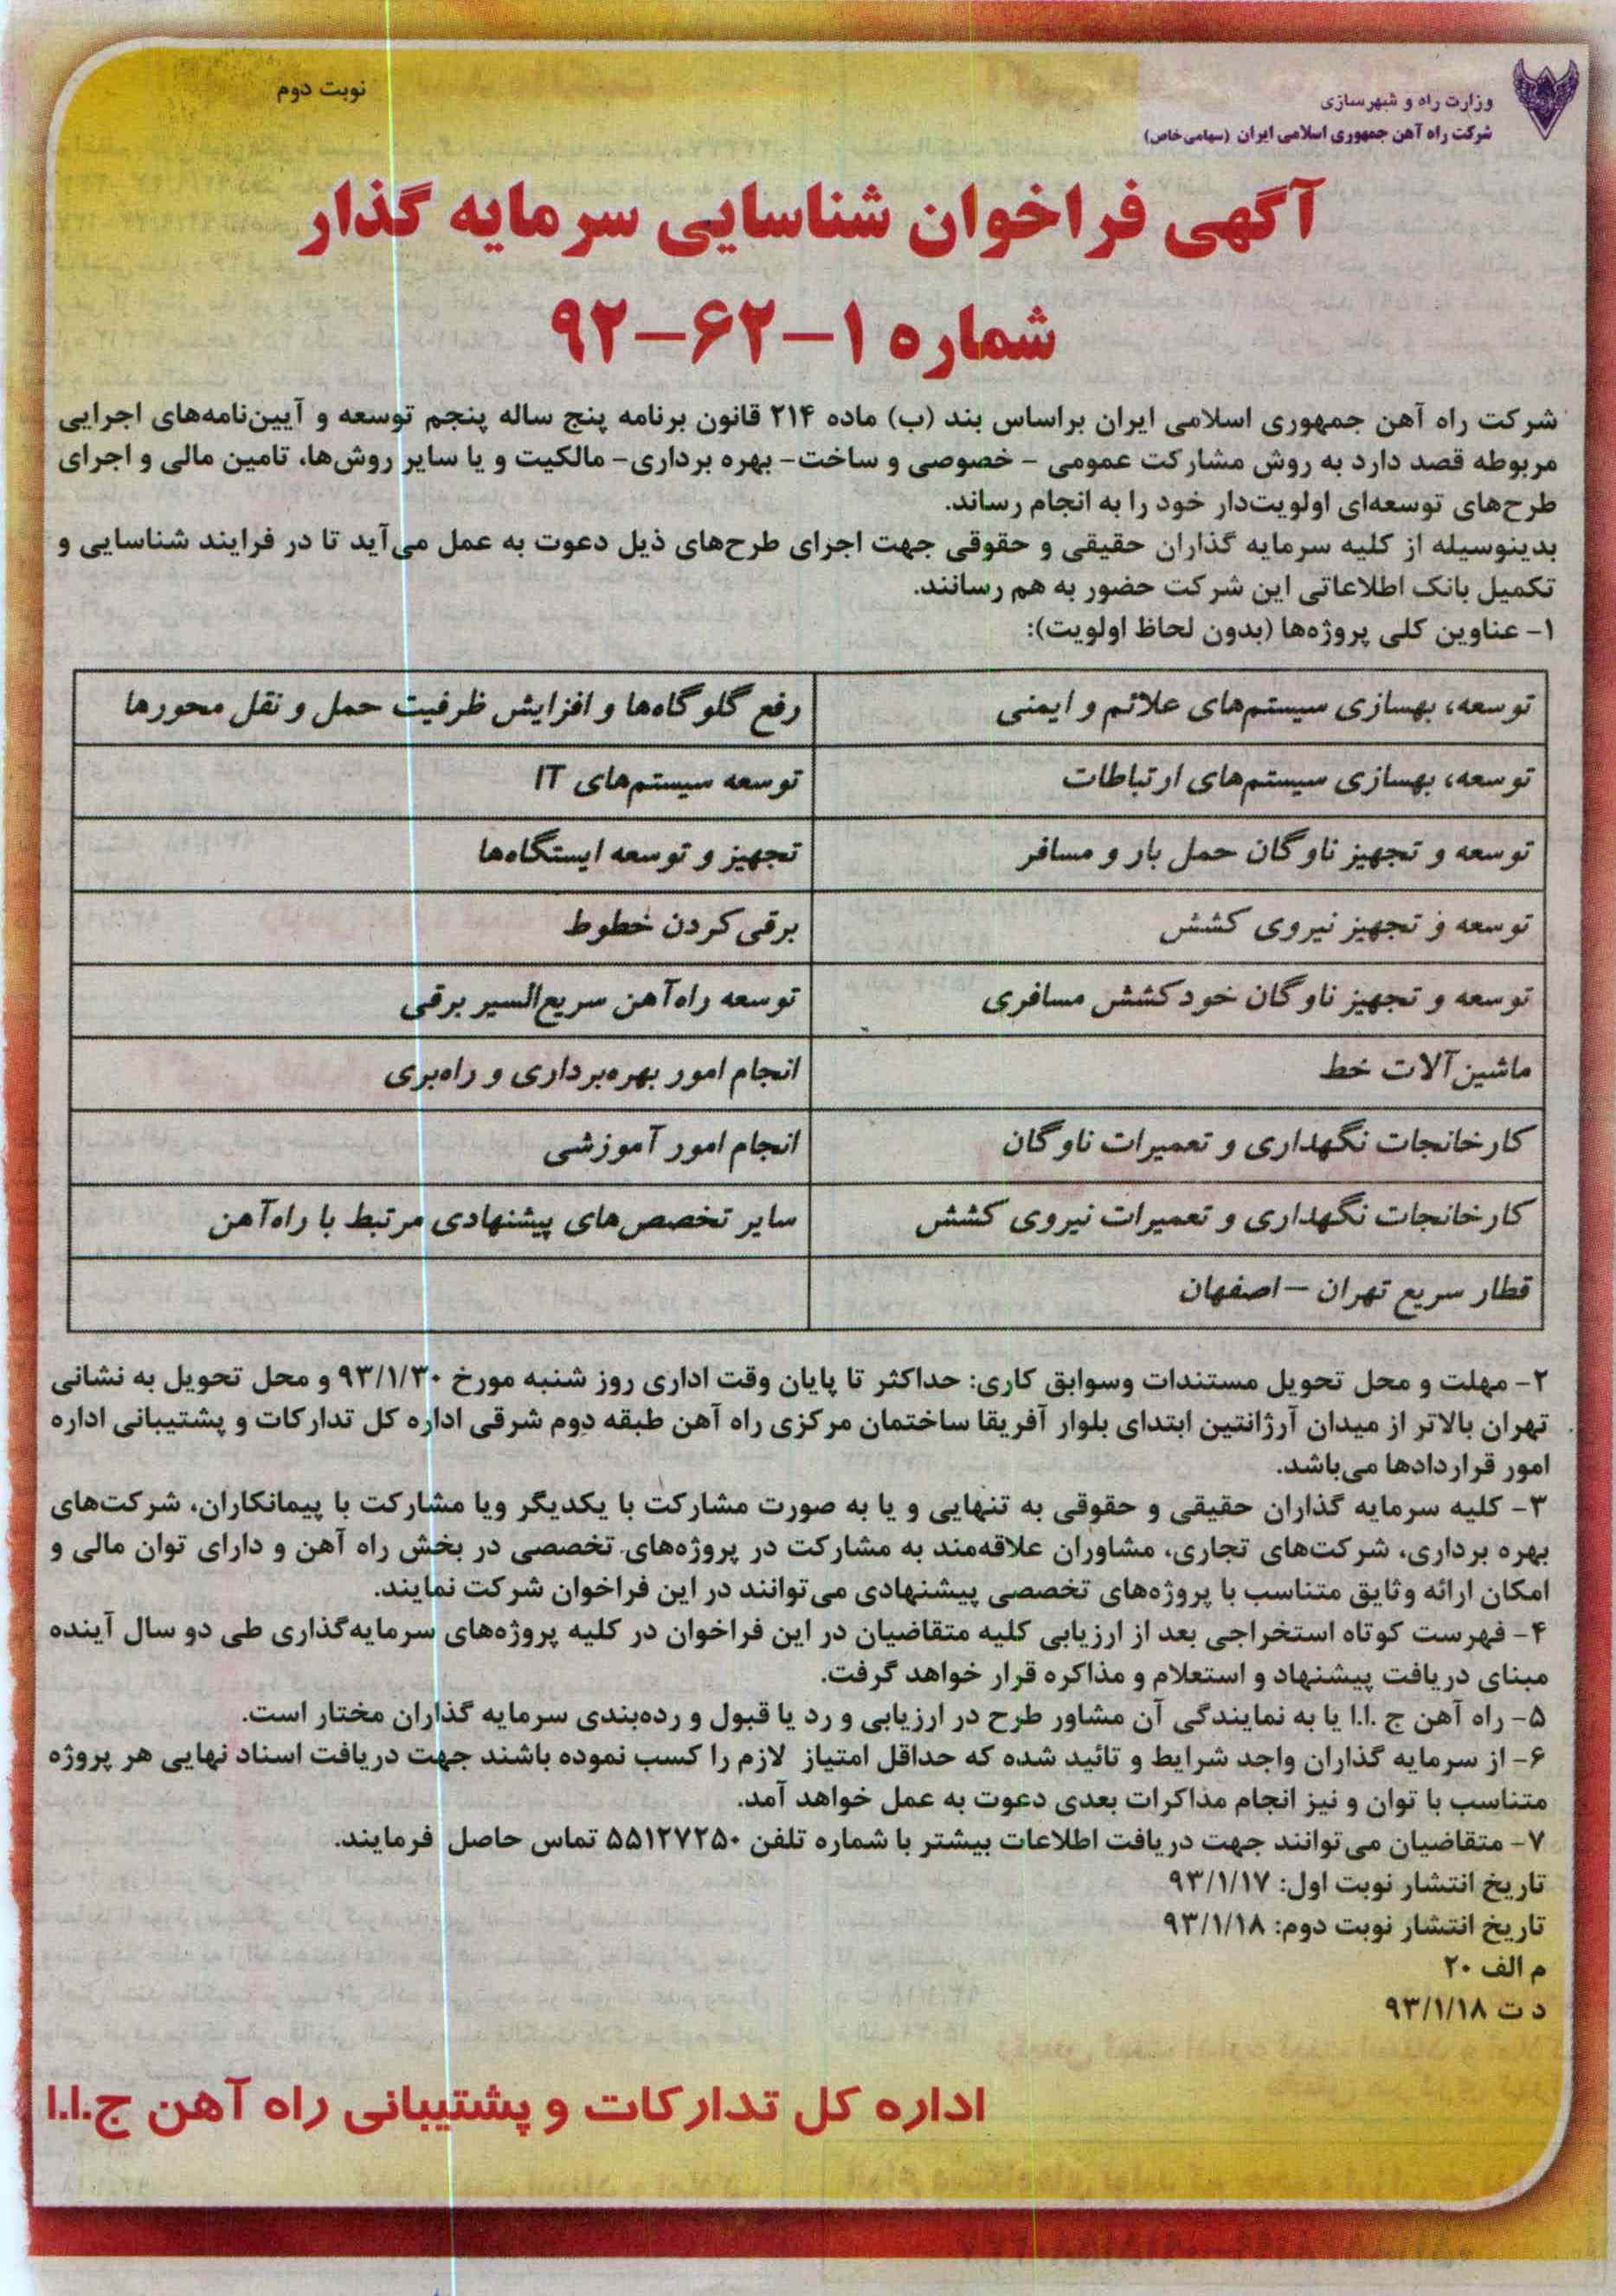 نوبت دوم
وزارت راه و شهرسازی
شرکت راه آهن جمهوری اسلامی ایران (سهامی خاص)
آگهی فراخوان شناسایی سرمایه گذار
شماره ۱-۶۲-۹۲
شرکت راه آهن جمهوری اسلامی ایران براساس بند (ب) ماده ۲۱۴ قانون برنامه پنج ساله پنجم توسعه و آیین‌نامه‌های اجرایی
مربوطه قصد دارد به روش مشارکت عمومی - خصوصی و ساخت- بهره برداری- مالکیت و یا سایر روش‌ها، تامین مالی و اجرای
طرح‌های توسعه‌ای اولویت‌دار خود را به انجام رساند.
بدینوسیله از کلیه سرمایه گذاران حقیقی و حقوقی جهت اجرای طرح‌های ذیل دعوت به عمل می‌آید تا در فرایند شناسایی و
تکمیل بانک اطلاعاتی این شرکت حضور به هم رسانند.
۱- عناوین کلی پروژه‌ها (بدون لحاظ اولویت):
توسعه، بهسازی سیستم‌های علائم و ایمنی
رفع گلوگاه‌ها و افزایش ظرفیت حمل و نقل محورها
توسعه، بهسازی سیستم‌های ارتباطات
توسعه سیستم‌های IT
توسعه و تجهیز ناوگان حمل بار و مسافر
تجهیز و توسعه ایستگاه‌ها
توسعه و تجهیز نیروی کشش
برقی کردن خطوط
توسعه و تجهیز ناوگان خودکشش مسافری
توسعه راه‌آهن سریع‌السیر برقی
ماشین‌آلات خط
انجام امور بهره‌برداری و راهبری
کارخانجات نگهداری و تعمیرات ناوگان
انجام امور آموزشی
کارخانجات نگهداری و تعمیرات نیروی کشش
سایر تخصص‌های پیشنهادی مرتبط با راه‌آهن
قطار سریع تهران - اصفهان
۲- مهلت و محل تحویل مستندات وسوابق کاری: حداکثر تا پایان وقت اداری روز شنبه مورخ ۹۳/۱/۳۰ و محل تحویل به نشانی
تهران بالاتر از میدان آرژانتین ابتدای بلوار آفریقا ساختمان مرکزی راه آهن طبقه دوم شرقی اداره کل تدارکات و پشتیبانی اداره
امور قراردادها می‌باشد.
۳- کلیه سرمایه گذاران حقیقی و حقوقی به تنهایی و یا به صورت مشارکت با یکدیگر ویا مشارکت با پیمانکاران، شرکت‌های
بهره برداری، شرکت‌های تجاری، مشاوران علاقه‌مند به مشارکت در پروژه‌های تخصصی در بخش راه آهن و دارای توان مالی و
امکان ارائه وثایق متناسب با پروژه‌های تخصصی پیشنهادی می‌توانند در این فراخوان شرکت نمایند.
۴- فهرست کوتاه استخراجی بعد از ارزیابی کلیه متقاضیان در این فراخوان در کلیه پروژه‌های سرمایه‌گذاری طی دو سال آینده
مبنای دریافت پیشنهاد و استعلام و مذاکره قرار خواهد گرفت.
۵- راه آهن ج .ا.ا یا به نمایندگی آن مشاور طرح در ارزیابی و رد یا قبول و رده‌بندی سرمایه گذاران مختار است.
۶- از سرمایه گذاران واجد شرایط و تائید شده که حداقل امتیاز لازم را کسب نموده باشند جهت دریافت اسناد نهایی هر پروژه
متناسب با توان و نیز انجام مذاکرات بعدی دعوت به عمل خواهد آمد.
۷- متقاضیان می‌توانند جهت دریافت اطلاعات بیشتر با شماره تلفن ۵۵۱۲۷۲۵۰ تماس حاصل فرمایند.
تاریخ انتشار نوبت اول: ۹۳/۱/۱۷
تاریخ انتشار نوبت دوم: ۹۳/۱/۱۸
م الف ۲۰
د ت ۹۳/۱/۱۸
اداره کل تدارکات و پشتیبانی راه آهن ج.ا.ا